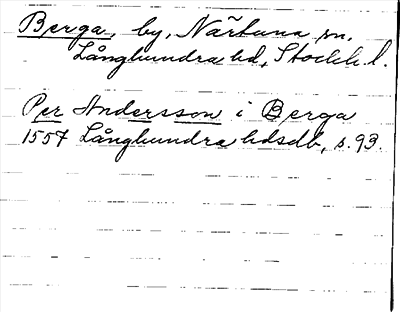 Berga, by, Närtuna sn.
Långhundra hd, Stockh. l.
Per Andersson i Berga
1557 Långhundra hdsdb, s. 93.